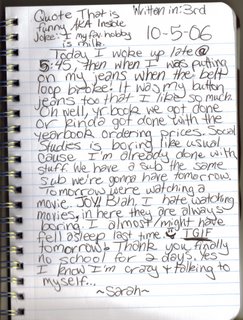 Quote That is Written in: 3rd
funny AKA Inside
Joke: I my fav hobby 10-5-06
is milk.
Today I woke up late @
5:45, then when I was putting
on my jeans when the belt
loop broke! It was my button
jeans too that I like so much.
Oh well, yr. book we got done
or kinda got done with the
yearbook ordering prices. Social
Studies is boring like usual
cause I'm already done with
stuff. We have a sub the same
sub we're gonna have tomorrow.
Tomorrow we're watching a
movie. JOY! Blah. I hate watching
movies, in here they are always
boring. I almost/might have
fell asleep last time. TGIF
tomorrow! Thank you finally
no school for 2 days. Yes
I know I'm crazy & talking to
myself...
~Sarah~